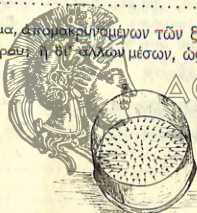 μα, ἀπομακρυνομένων τῶν ξ
ρου, ἢ δι' ἄλλων μέσων, ὡ